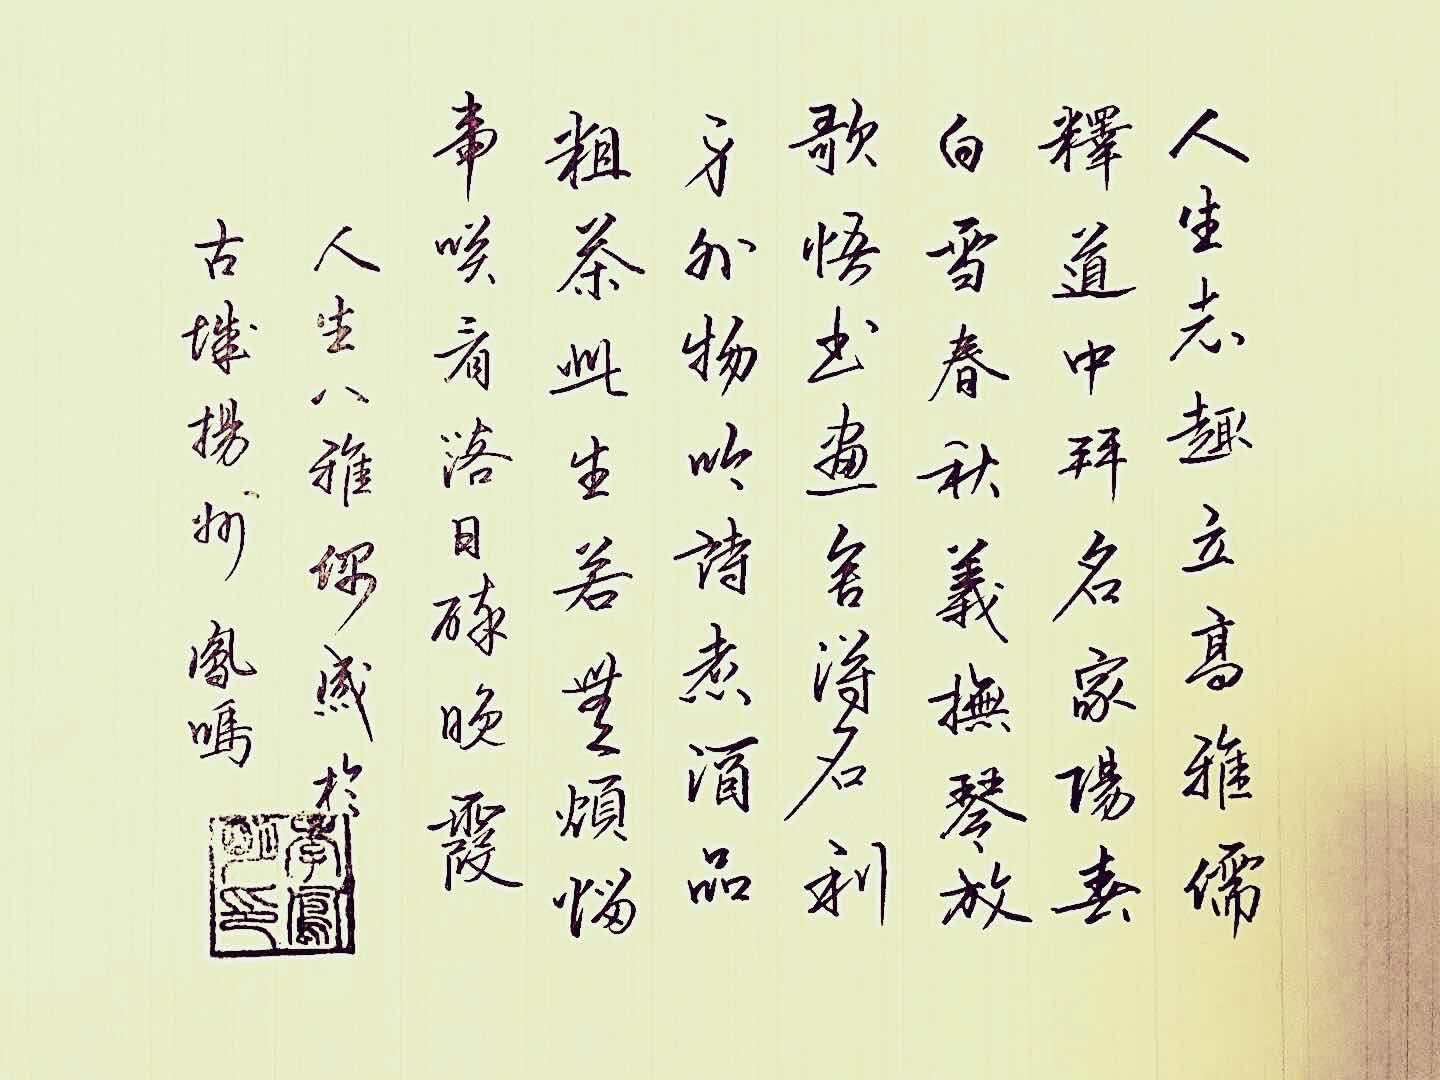 人生志趣立高雅儒
釋道中拜名家陽春
白雪春秋義撫琴放
歌悟书畫舍得名利
身外物吟詩煮酒品
粗茶此生若無煩惱
事咲看落日醉晚霞
人生八雅偶感於
古城揚州 鳳鳴
李鳳鳴印